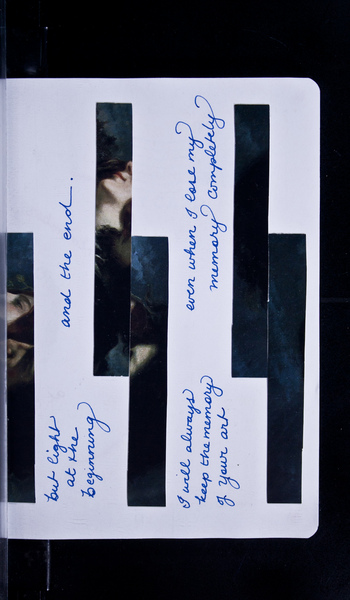 but light
at the
beginning
and the end.
I will always
keep the memory
of your art
even when I lose my
memory completely